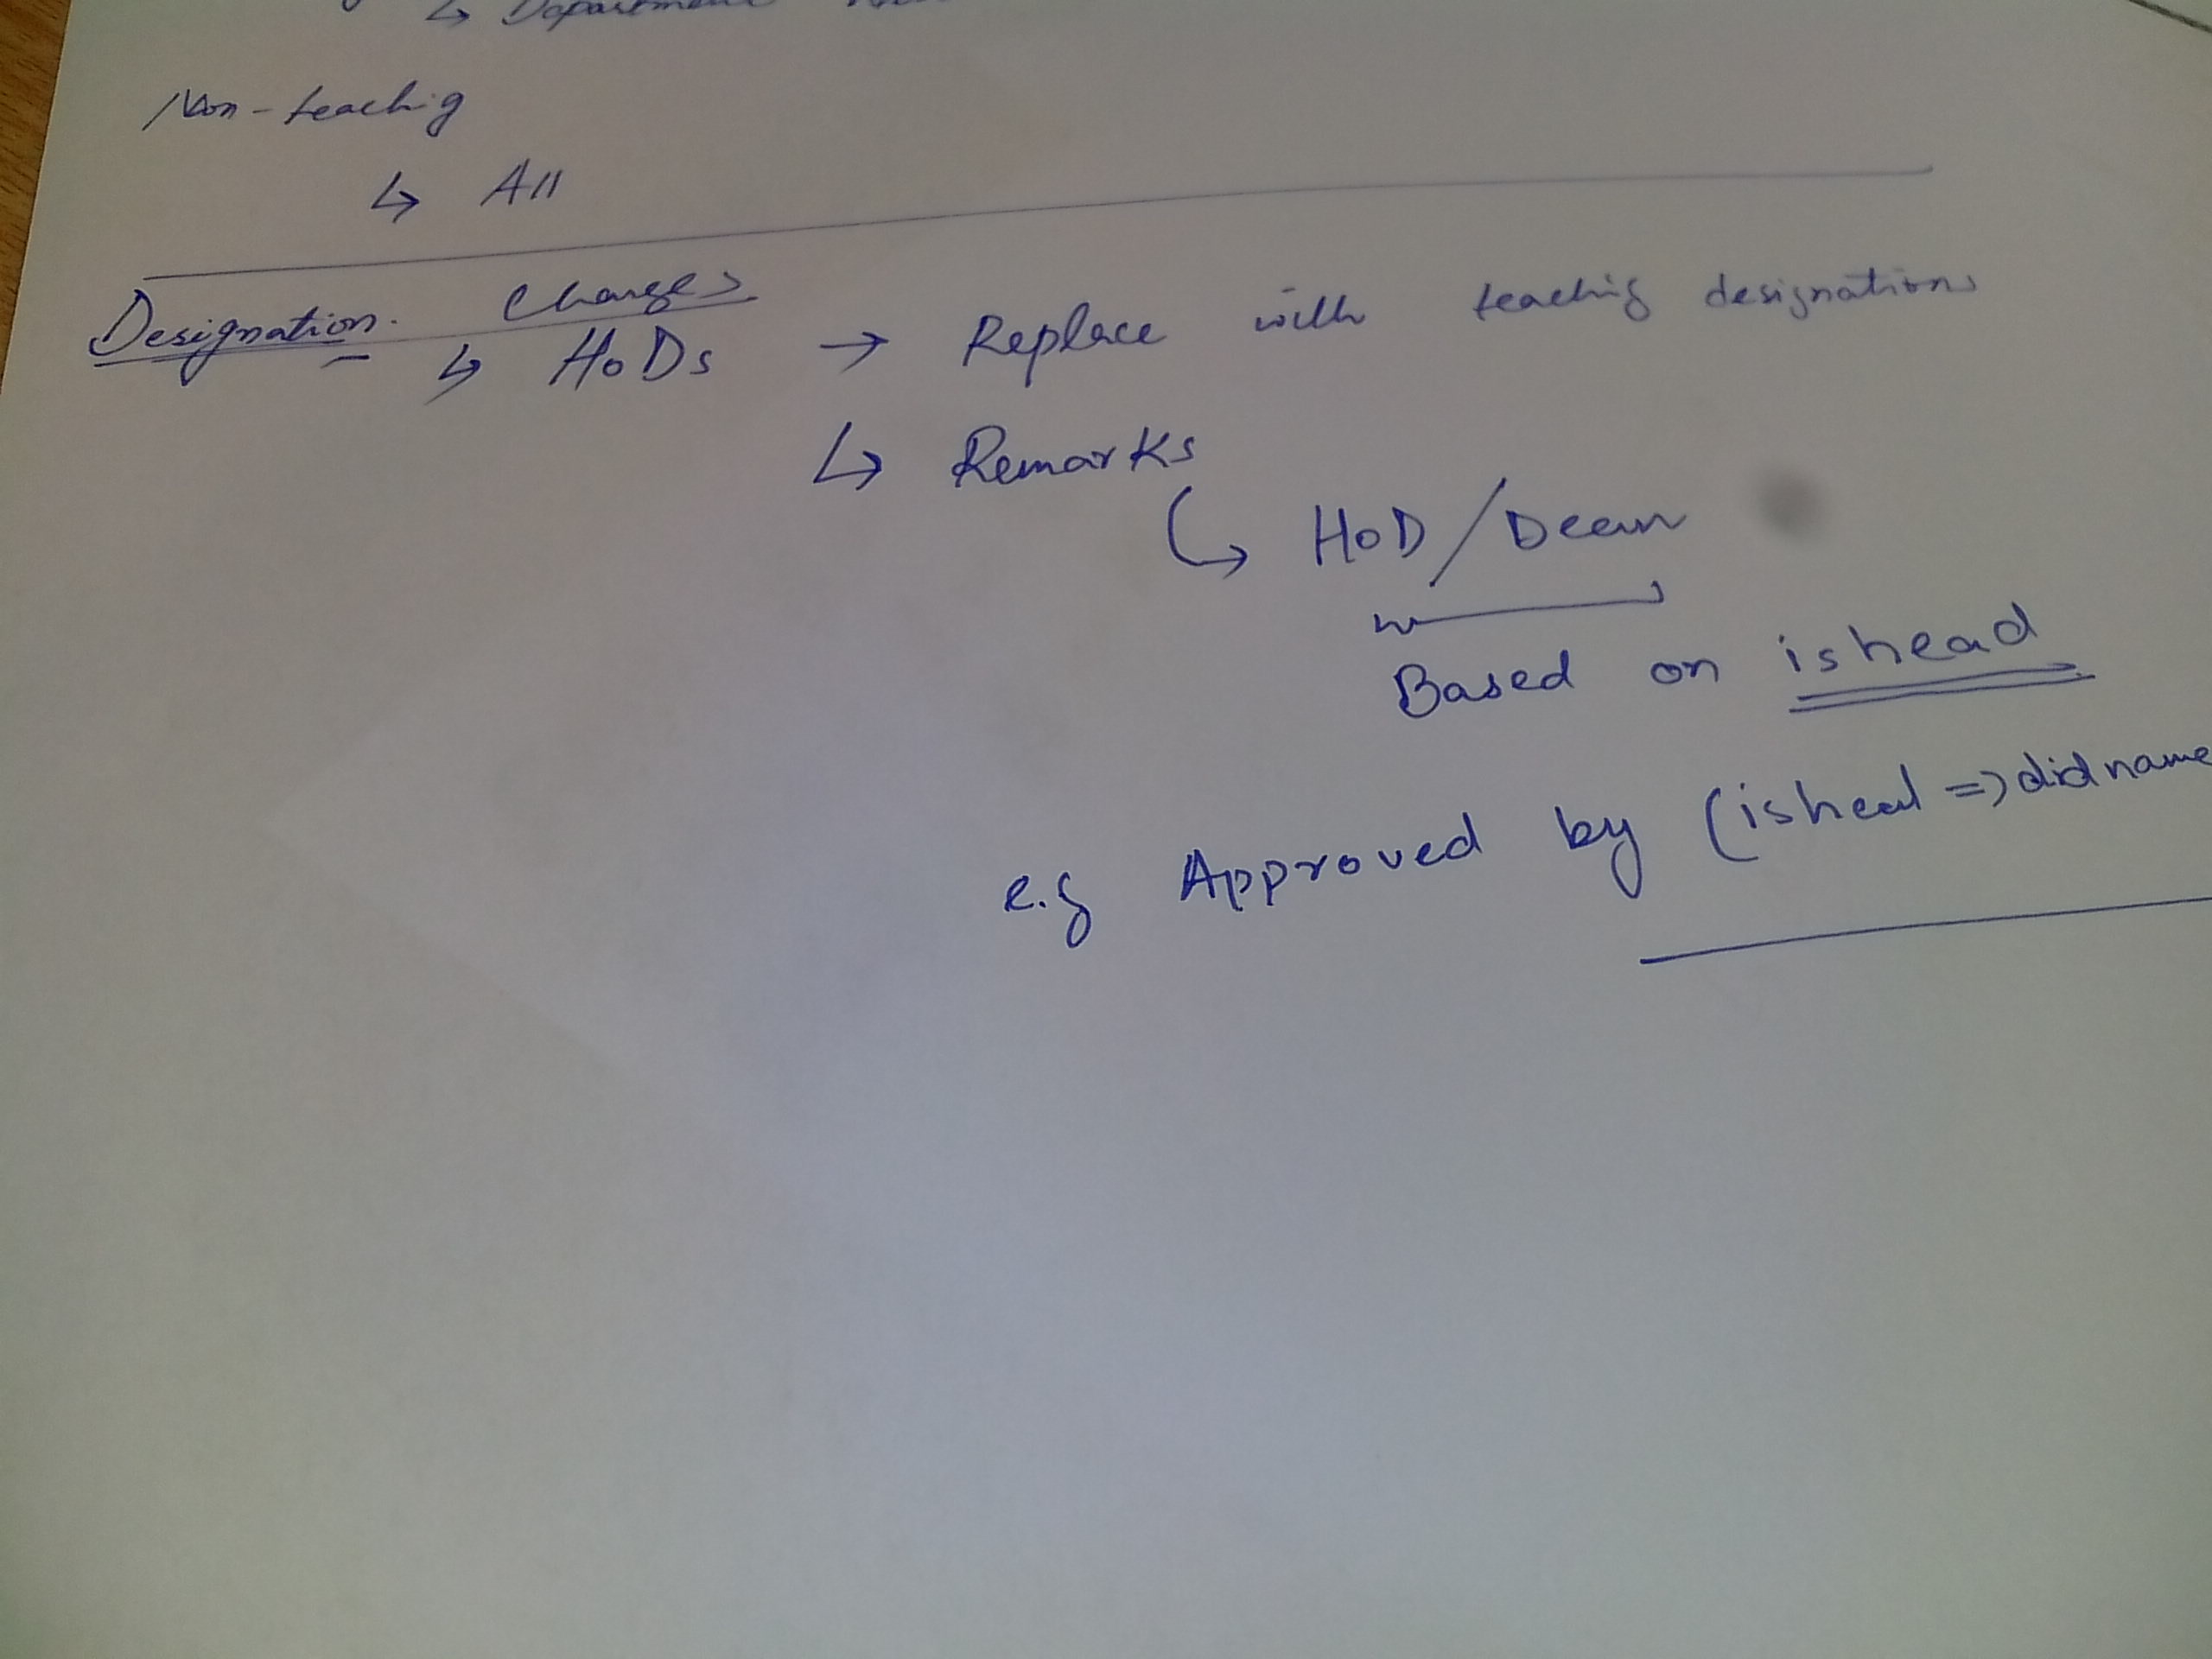 ↳ Department
Non-teaching
↳ All
Designation. Changes
↳ HoDs → Replace with teaching designations
↳ Remarks
↳ HoD/Dean
Based on ishead
e.g Approved by (ishead => didname